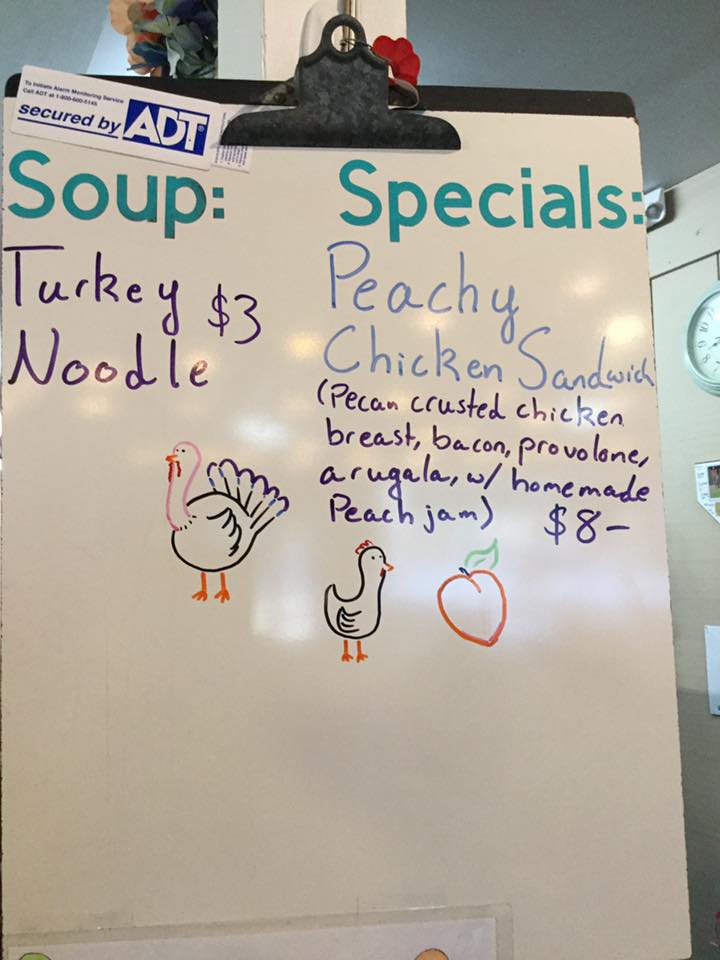 To Initiate Alarm Monitoring Service
Call ADT at 1-800-600-5145
secured by ADT
Soup:
Turkey $3
Noodle
Specials:
Peachy
Chicken Sandwich
(Pecan crusted chicken
breast, bacon, provolone,
arugala, w/ homemade
Peach jam) $8-